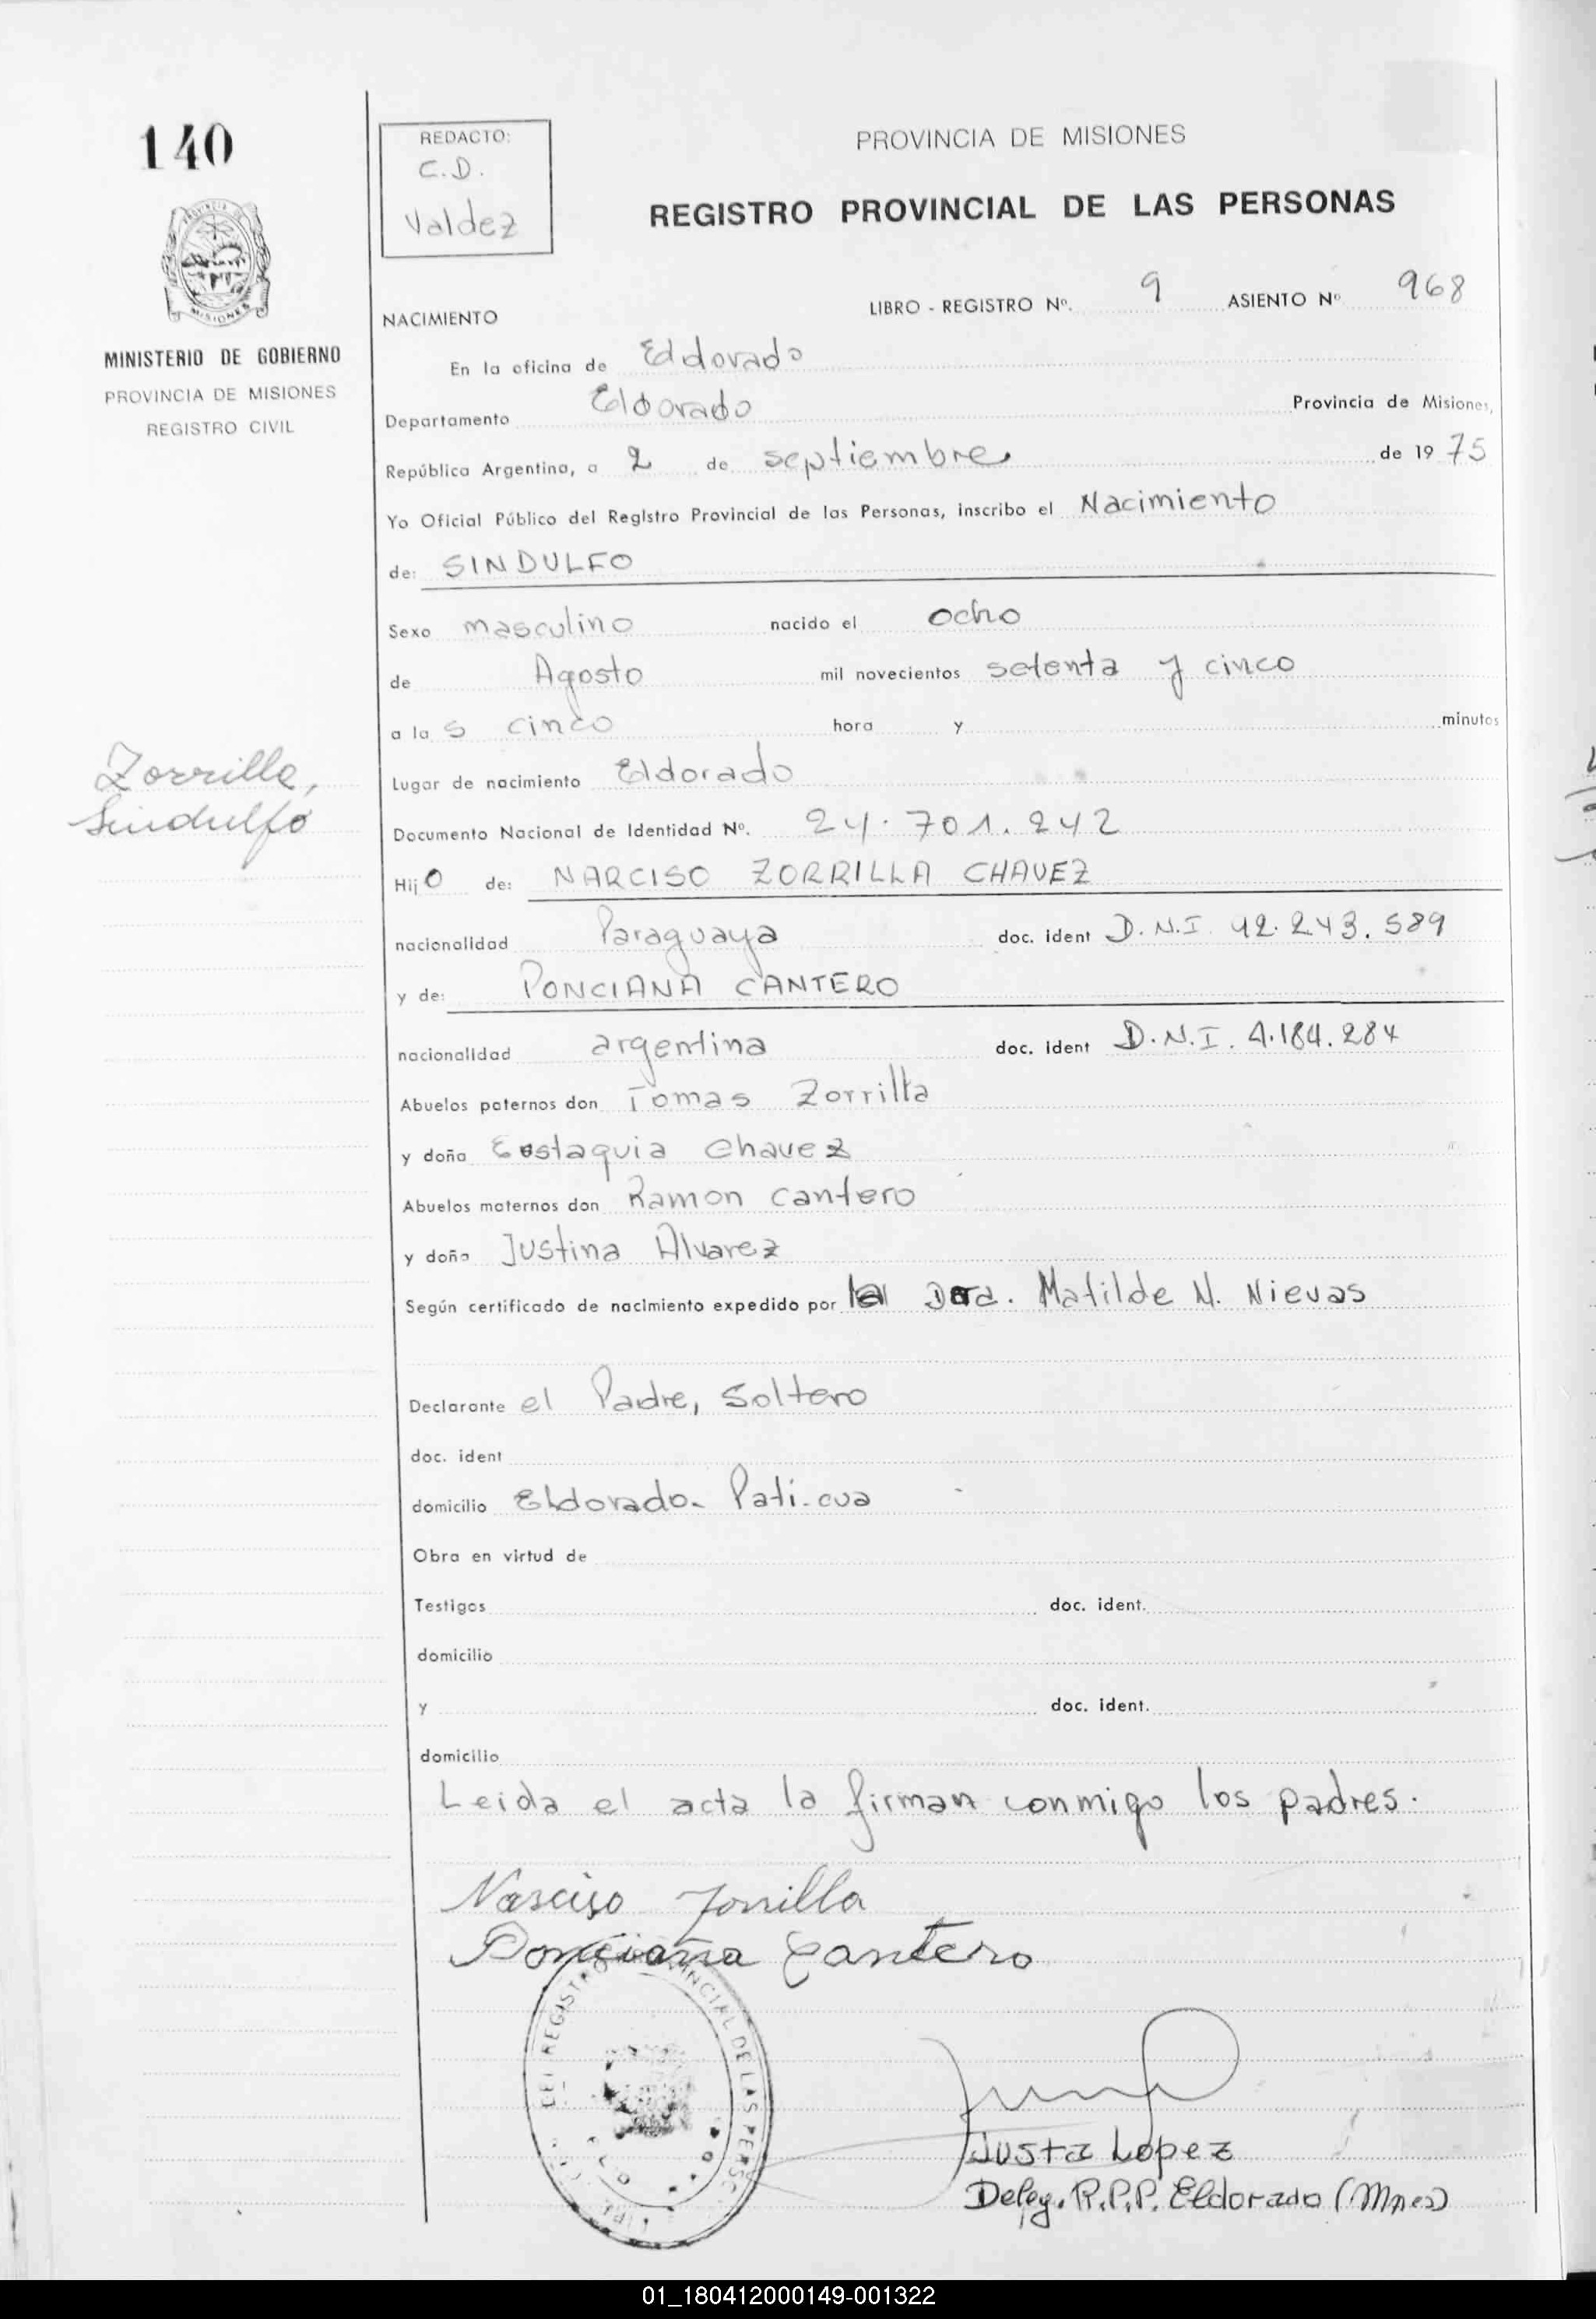 140
REDACTO:
C.D.
Valdez
PROVINCIA DE MISIONES
REGISTRO PROVINCIAL DE LAS PERSONAS
MINISTERIO DE GOBIERNO
PROVINCIA DE MISIONES
REGISTRO CIVIL
LIBRO - REGISTRO Nº. 9 ASIENTO Nº 968
NACIMIENTO
En la oficina de Eldorado
Departamento Eldorado Provincia de Misiones,
República Argentina, a 2 de septiembre de 19 75
Yo Oficial Público del Registro Provincial de las Personas, inscribo el Nacimiento
de: SINDULFO
Sexo masculino nacido el ocho
de Agosto mil novecientos setenta y cinco
a la s cinco hora y minutos
Zorrilla,
Sindulfo
Lugar de nacimiento Eldorado
Documento Nacional de Identidad Nº. 24.701.242
Hij o de: NARCISO ZORRILLA CHAVEZ
nacionalidad Paraguaya doc. ident D.N.I. 92.243.589
y de: PONCIANA CANTERO
nacionalidad argentina doc. ident D.N.I. 4.184.284
Abuelos paternos don Tomas Zorrilla
y doña Eustaquia Chavez
Abuelos maternos don Ramon Cantero
y doña Justina Alvarez
Según certificado de nacimiento expedido por la Dra. Matilde N. Nievas
Declarante el Padre, Soltero
doc. ident
domicilio Eldorado- Pati-cua
Obra en virtud de
Testigos doc. ident.
domicilio
y doc. ident.
domicilio
Leida el acta la firman conmigo los padres.
Narciso Zorrilla
Ponciana Cantero
DEL REGISTRO PROVINCIAL DE LAS PERS
Justa Lopez
Deleg. R.P.P. Eldorado (Mnes)
01_180412000149-001322